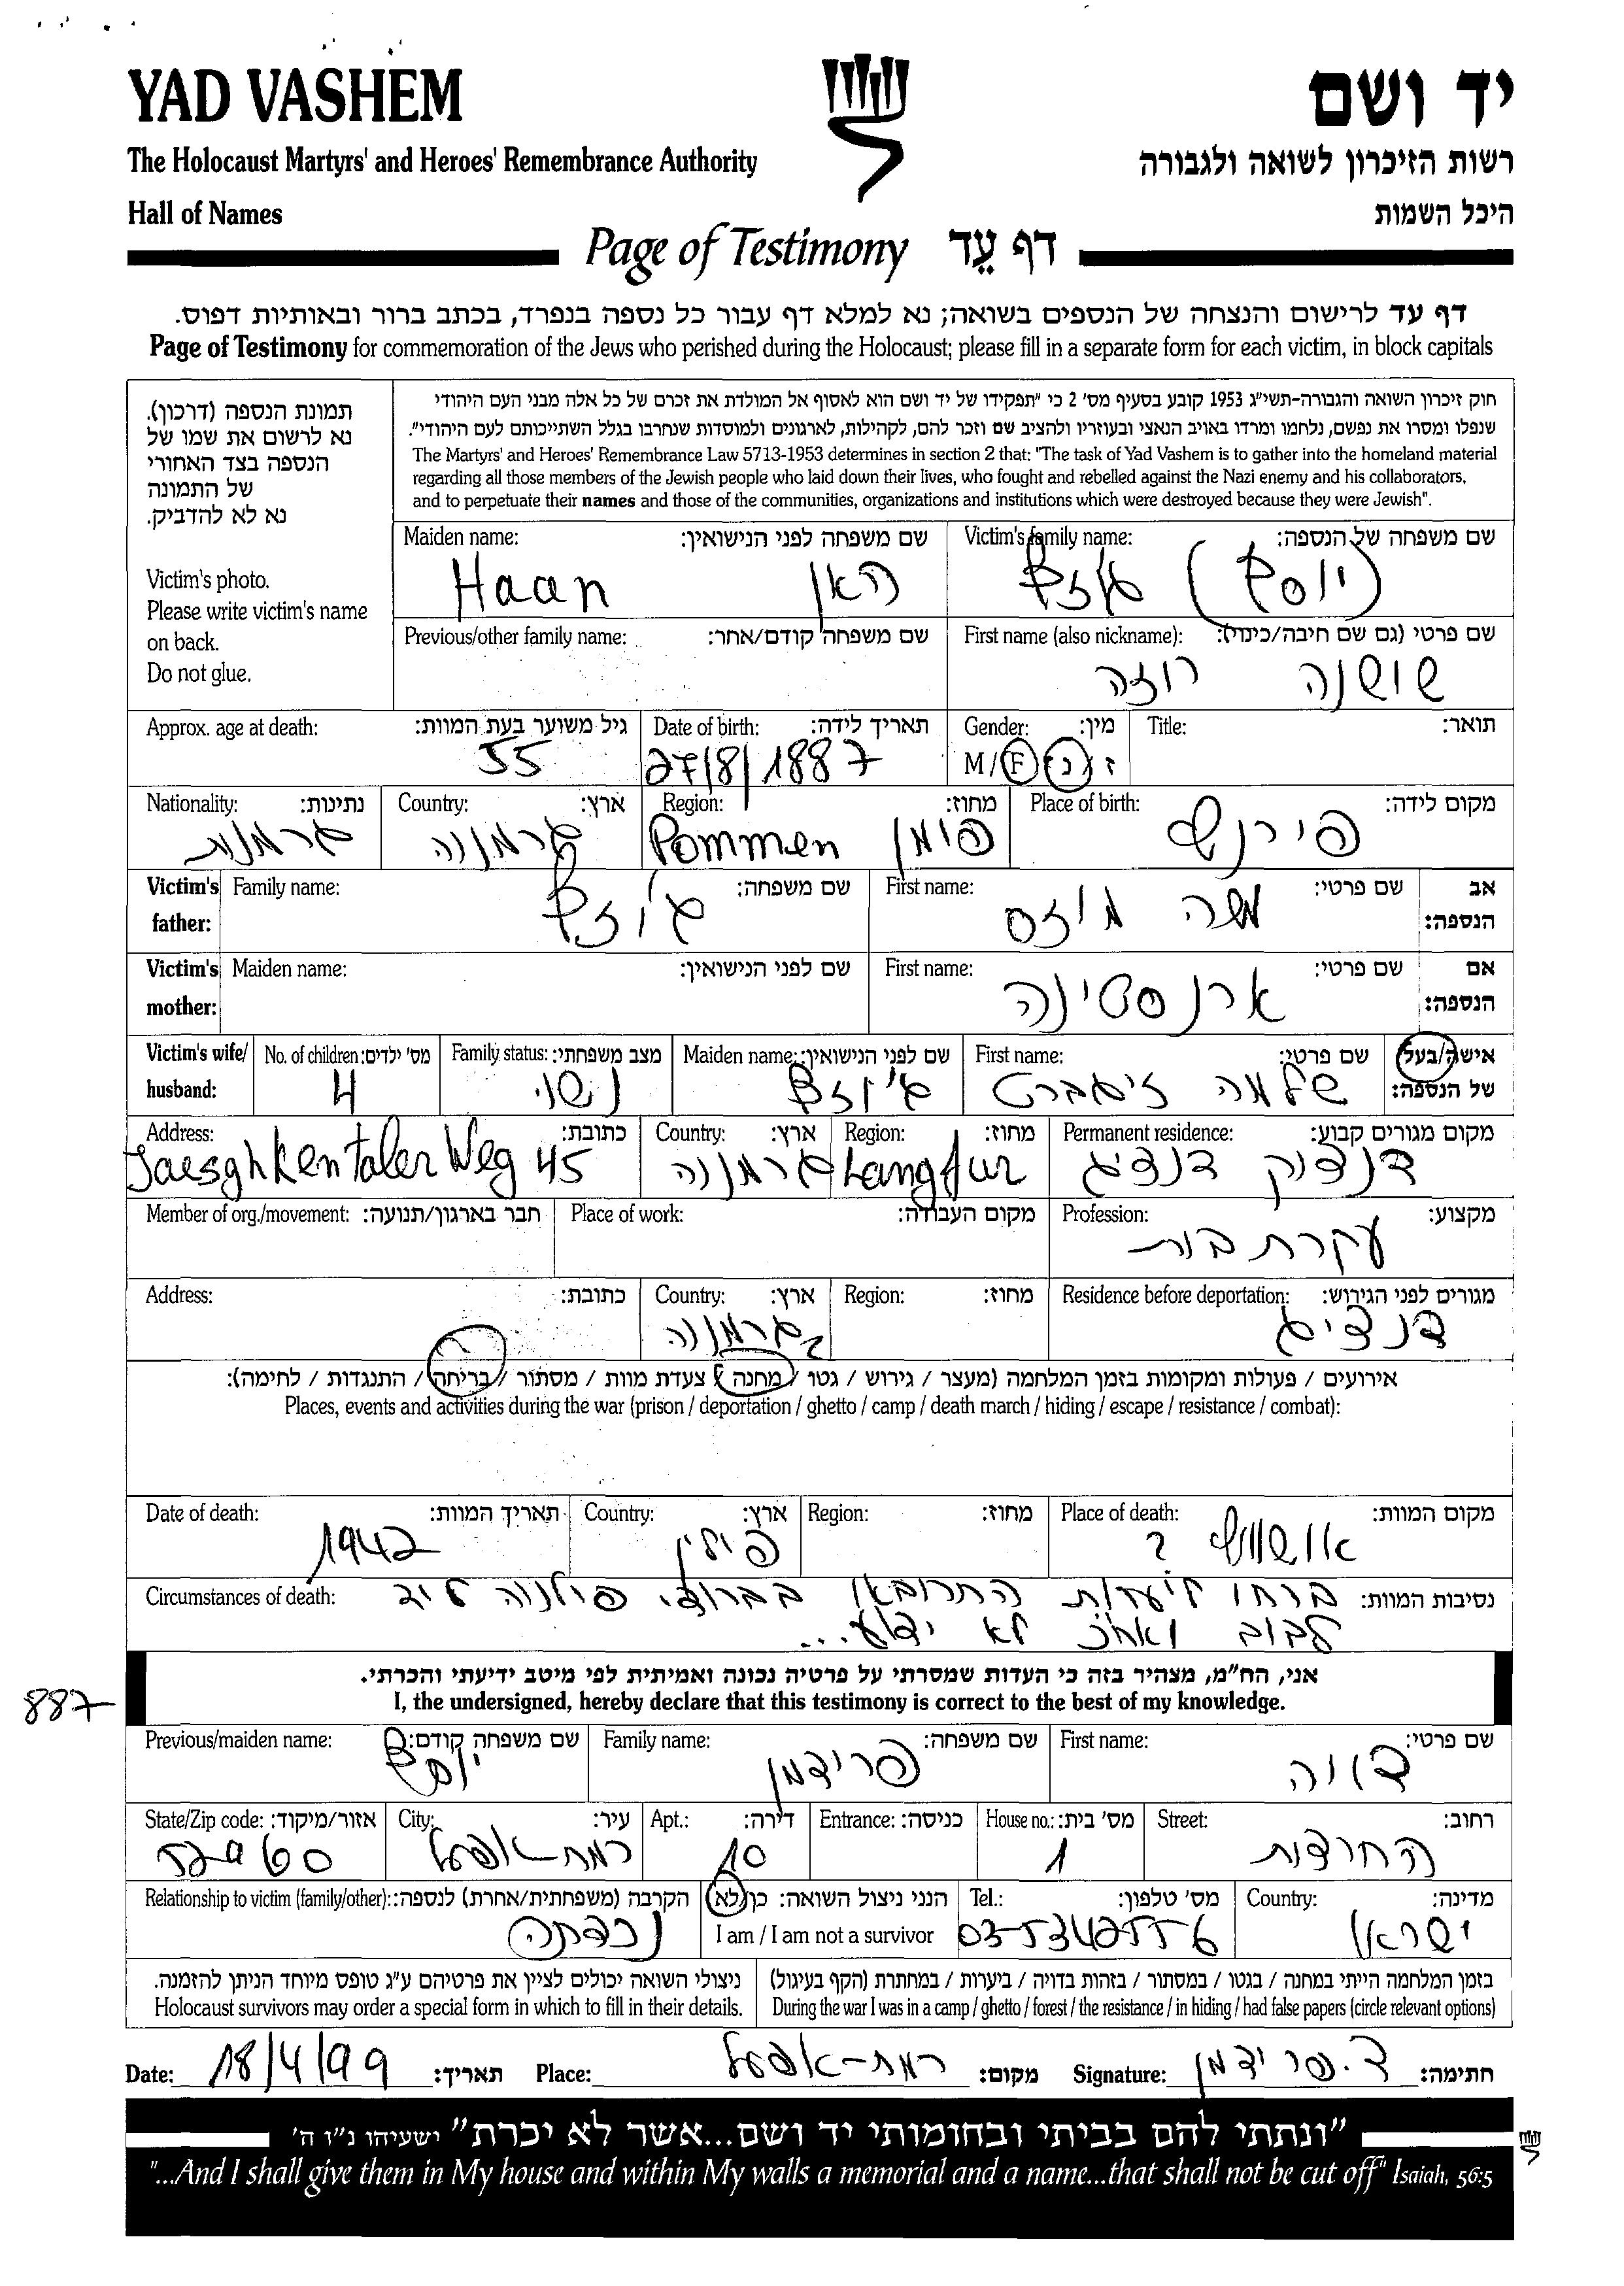 YAD VASHEM
יד ושם
The Holocaust Martyrs' and Heroes' Remembrance Authority
רשות הזיכרון לשואה ולגבורה
Hall of Names
היכל השמות
Page of Testimony דף עֵד
דף עד לרישום והנצחה של הנספים בשואה; נא למלא דף עבור כל נספה בנפרד, בכתב ברור ובאותיות דפוס.
Page of Testimony for commemoration of the Jews who perished during the Holocaust; please fill in a separate form for each victim, in block capitals
חוק זיכרון השואה והגבורה-תשי"ג 1953 קובע בסעיף מס' 2 כי "תפקידו של יד ושם הוא לאסוף אל המולדת את זכרם של כל אלה מבני העם היהודי
שנפלו ומסרו את נפשם, נלחמו ומרדו באויב הנאצי ובעוזריו ולהציב שם וזכר להם, לקהילות, לארגונים ולמוסדות שנחרבו בגלל השתייכותם לעם היהודי".
The Martyrs' and Heroes' Remembrance Law 5713-1953 determines in section 2 that: "The task of Yad Vashem is to gather into the homeland material
regarding all those members of the Jewish people who laid down their lives, who fought and rebelled against the Nazi enemy and his collaborators,
and to perpetuate their names and those of the communities, organizations and institutions which were destroyed because they were Jewish".
תמונת הנספה (דרכון).
נא לרשום את שמו של
הנספה בצד האחורי
של התמונה
נא לא להדביק.
Victim's photo.
Please write victim's name
on back.
Do not glue.
Victim's family name: שם משפחה של הנספה:
(יוסף)
Maiden name: שם משפחה לפני הנישואין:
Haan האן
First name (also nickname): שם פרטי (גם שם חיבה/כינוי):
שושנה רוזה
Previous/other family name: שם משפחה קודם/אחר:
Title: תואר:
Gender: מין:
M / F ז / נ
Date of birth: תאריך לידה:
27/8/1887
Approx. age at death: גיל משוער בעת המוות:
55
Place of birth: מקום לידה:
Region: מחוז:
Pommen פומן
Country: ארץ:
גרמניה
Nationality: נתינות:
גרמנית
Victim's father: אב הנספה:
First name: שם פרטי:
משה מוזס
Family name: שם משפחה:
Victim's mother: אם הנספה:
First name: שם פרטי:
ארנסטינה
Maiden name: שם לפני הנישואין:
Victim's wife/ husband: אישה/בעל של הנספה:
First name: שם פרטי:
שלמה זיגברט
Maiden name: שם לפני הנישואין:
Family status: מצב משפחתי:
נשוי
No. of children: מס' ילדים:
4
Permanent residence: מקום מגורים קבוע:
דנציג
Region: מחוז:
Langfur
Country: ארץ:
גרמניה
Address: כתובת:
Jaesghkentaler Weg 45
Profession: מקצוע:
עקרת בית
Place of work: מקום העבודה:
Member of org./movement: חבר בארגון/תנועה:
Residence before deportation: מגורים לפני הגירוש:
דנציג
Region: מחוז:
Country: ארץ:
גרמניה
Address: כתובת:
אירועים / פעולות ומקומות בזמן המלחמה (מעצר / גירוש / גטו / מחנה / צעדת מוות / מסתור / בריחה / התנגדות / לחימה):
Places, events and activities during the war (prison / deportation / ghetto / camp / death march / hiding / escape / resistance / combat):
Place of death: מקום המוות:
אושוויץ ?
Region: מחוז:
Country: ארץ:
פולין
Date of death: תאריך המוות:
1942
Circumstances of death: נסיבות המוות:
ברחו ליערות ליד
לבוב ואח"כ לא ידוע...
אני, הח"מ, מצהיר בזה כי העדות שמסרתי על פרטיה נכונה ואמיתית לפי מיטב ידיעתי והכרתי.
I, the undersigned, hereby declare that this testimony is correct to the best of my knowledge.
887
First name: שם פרטי:
Family name: שם משפחה:
פרידמן
Previous/maiden name: שם משפחה קודם:
יוסף
Street: רחוב:
החרצית
House no.: מס' בית:
1
Entrance: כניסה:
Apt.: דירה:
10
City: עיר:
רמת-אפעל
State/Zip code: אזור/מיקוד:
52960
Country: מדינה:
ישראל
Tel.: מס' טלפון:
03-5342556
הנני ניצול השואה: כן/לא
I am / I am not a survivor
Relationship to victim (family/other): הקרבה (משפחתית/אחרת) לנספה:
נכדתה
בזמן המלחמה הייתי במחנה / בגטו / במסתור / בזהות בדויה / ביערות / במחתרת (הקף בעיגול)
During the war I was in a camp / ghetto / forest / the resistance / in hiding / had false papers (circle relevant options)
ניצולי השואה יכולים לציין את פרטיהם ע"ג טופס מיוחד הניתן להזמנה.
Holocaust survivors may order a special form in which to fill in their details.
Date: 18/4/99 תאריך: Place: רמת-אפעל מקום: Signature: ד. פרידמן חתימה:
"ונתתי להם בביתי ובחומותי יד ושם...אשר לא יכרת" ישעיהו נ"ו ה'
"...And I shall give them in My house and within My walls a memorial and a name...that shall not be cut off" Isaiah, 56:5